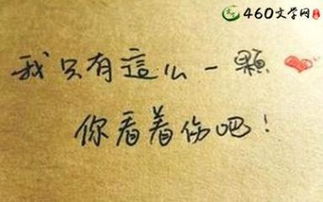 460文学网
我只有這么一颗❤
你看着伤吧！